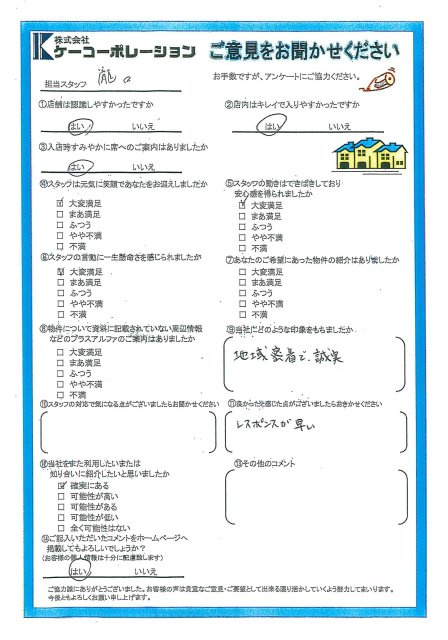 株式会社
ケーコーポレーション ご意見をお聞かせください
担当スタッフ 瀧口
お手数ですが、アンケートにご協力ください。
①店舗は認識しやすかったですか
はい いいえ
②店内はキレイで入りやすかったですか
はい いいえ
③入店時すみやかに席へのご案内はありましたか
はい いいえ
④スタッフは元気に笑顔であなたをお迎えしましたか
☑ 大変満足
□ まあ満足
□ ふつう
□ やや不満
□ 不満
⑤スタッフの動きはてきぱきしており
安心感を得られましたか
☑ 大変満足
□ まあ満足
□ ふつう
□ やや不満
□ 不満
⑥スタッフの言動に一生懸命さを感じられましたか
☑ 大変満足
□ まあ満足
□ ふつう
□ やや不満
□ 不満
⑦あなたのご希望にあった物件の紹介はありましたか
□ 大変満足
□ まあ満足
□ ふつう
□ やや不満
□ 不満
⑧物件について資料に記載されていない周辺情報
などのプラスアルファのご案内はありましたか
□ 大変満足
□ まあ満足
□ ふつう
□ やや不満
□ 不満
⑨当社にどのような印象をもちましたか
地域密着で誠実
⑩スタッフの対応で気になる点がございましたらお聞かせください
⑪良かったと感じた点がございましたらおきかせください
レスポンスが早い
⑫当社をまた利用したいまたは
知り合いに紹介したいと思いましたか
☑ 確実にある
□ 可能性が高い
□ 可能性がある
□ 可能性が低い
□ 全く可能性はない
⑬その他のコメント
⑭ご記入いただいたコメントをホームページへ
掲載してもよろしいでしょうか?
(お客様の個人情報は十分に配慮致します)
はい いいえ
ご協力誠にありがとうございました。お客様の声は貴重なご意見・ご要望として出来る限り活かしていくよう努力してまいります。
今後ともよろしくお願い申し上げます。